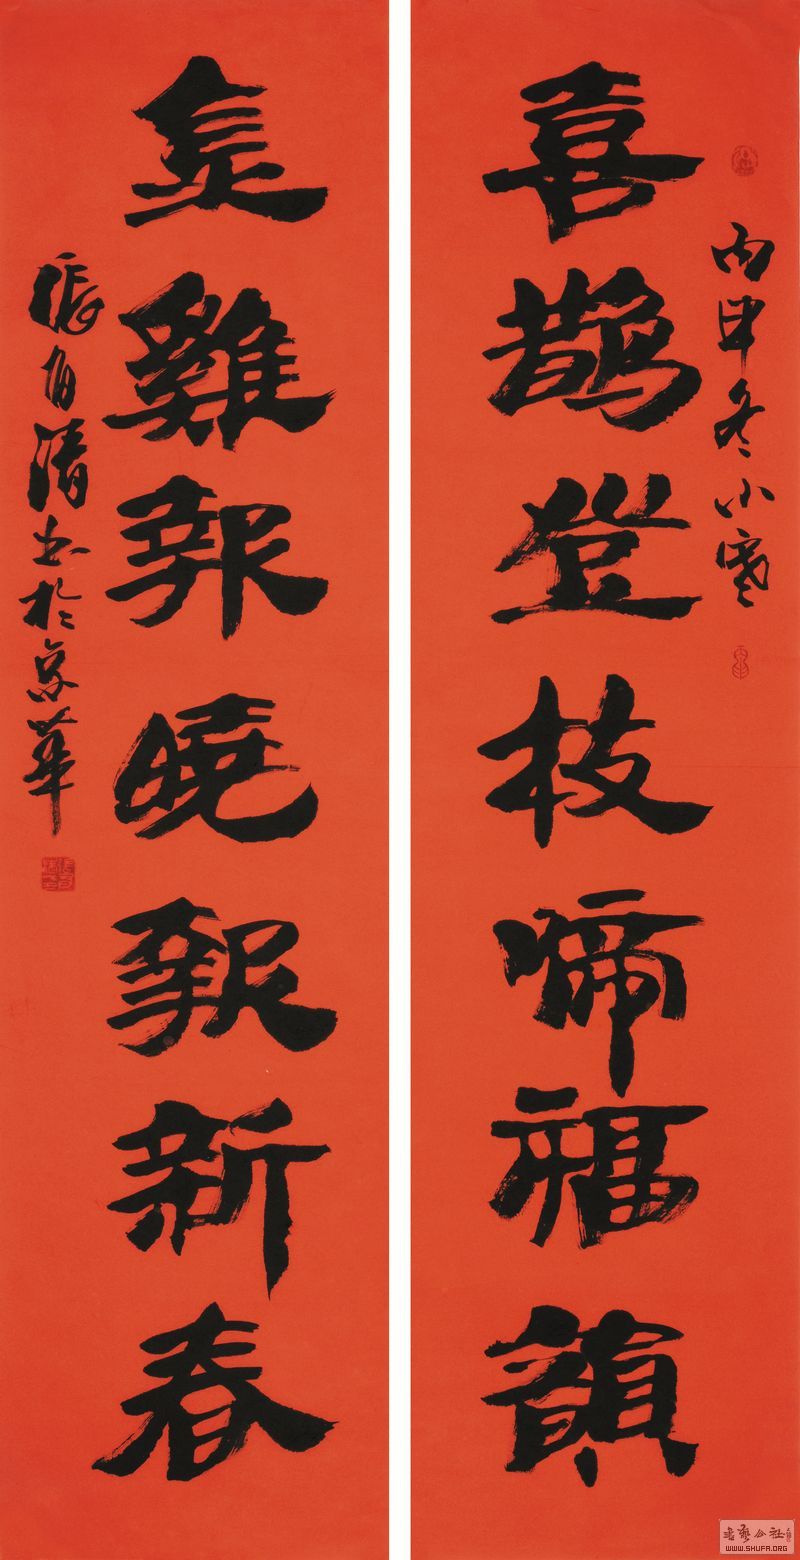 丙申冬小寒
喜鵲登枝啼福韻
金雞報曉報新春
張有清書於京華
書藝公社
WWW.SHUFA.ORG